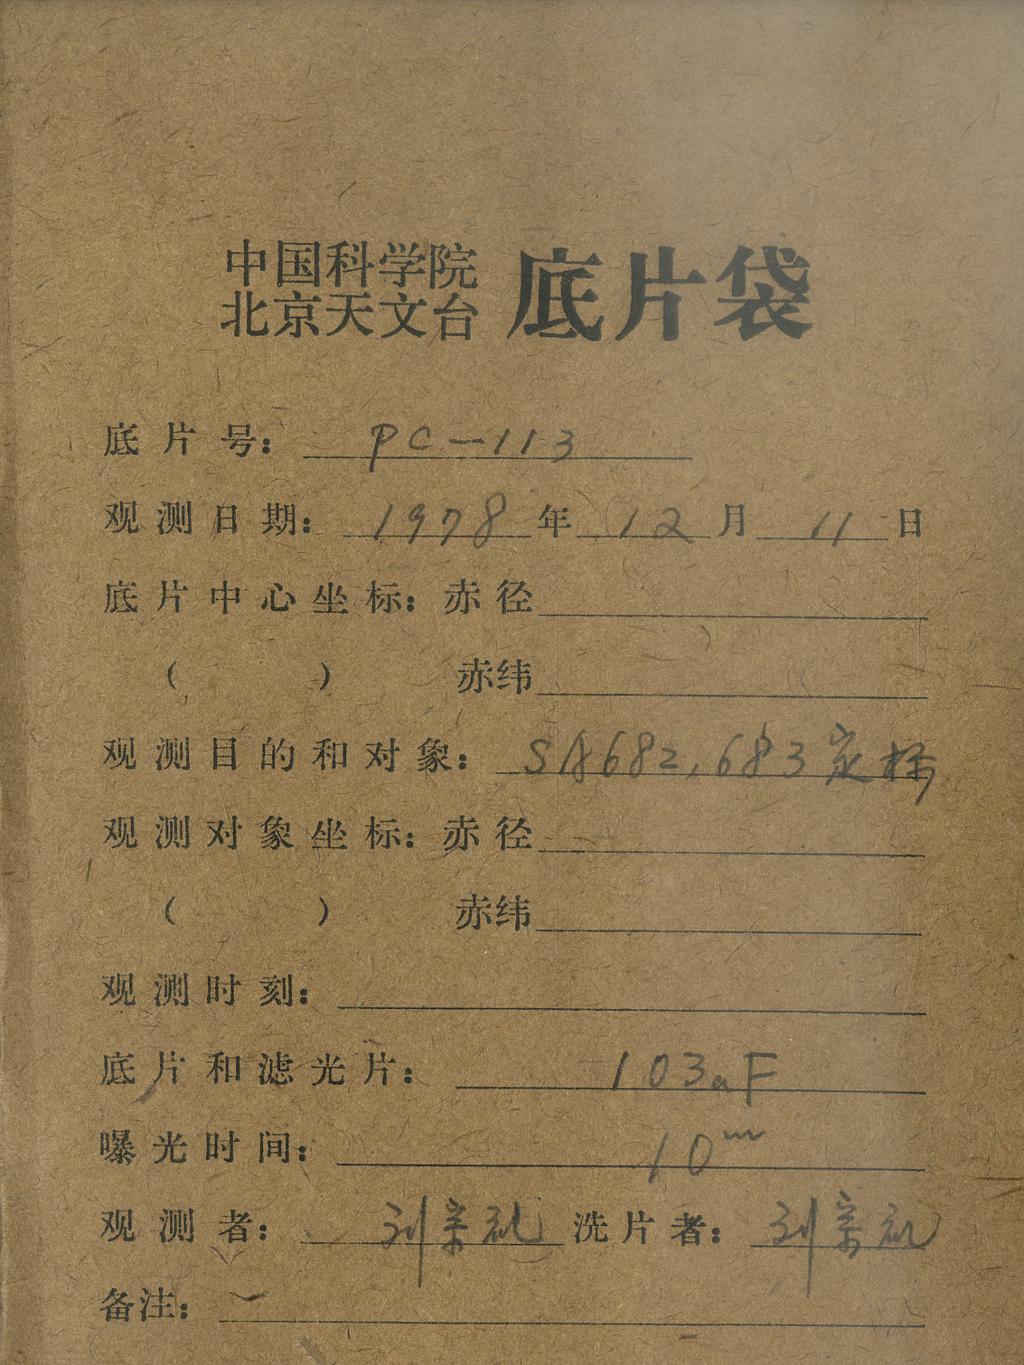 中国科学院
北京天文台
底片袋
底片号: PC-113
观测日期: 1978年12月11日
底片中心坐标: 赤径
( ) 赤纬
观测目的和对象: SA682,683定标
观测对象坐标: 赤径
( ) 赤纬
观测时刻:
底片和滤光片: 103aF
曝光时间: 10m
观测者: 刘宗礼 洗片者: 刘宗礼
备注: